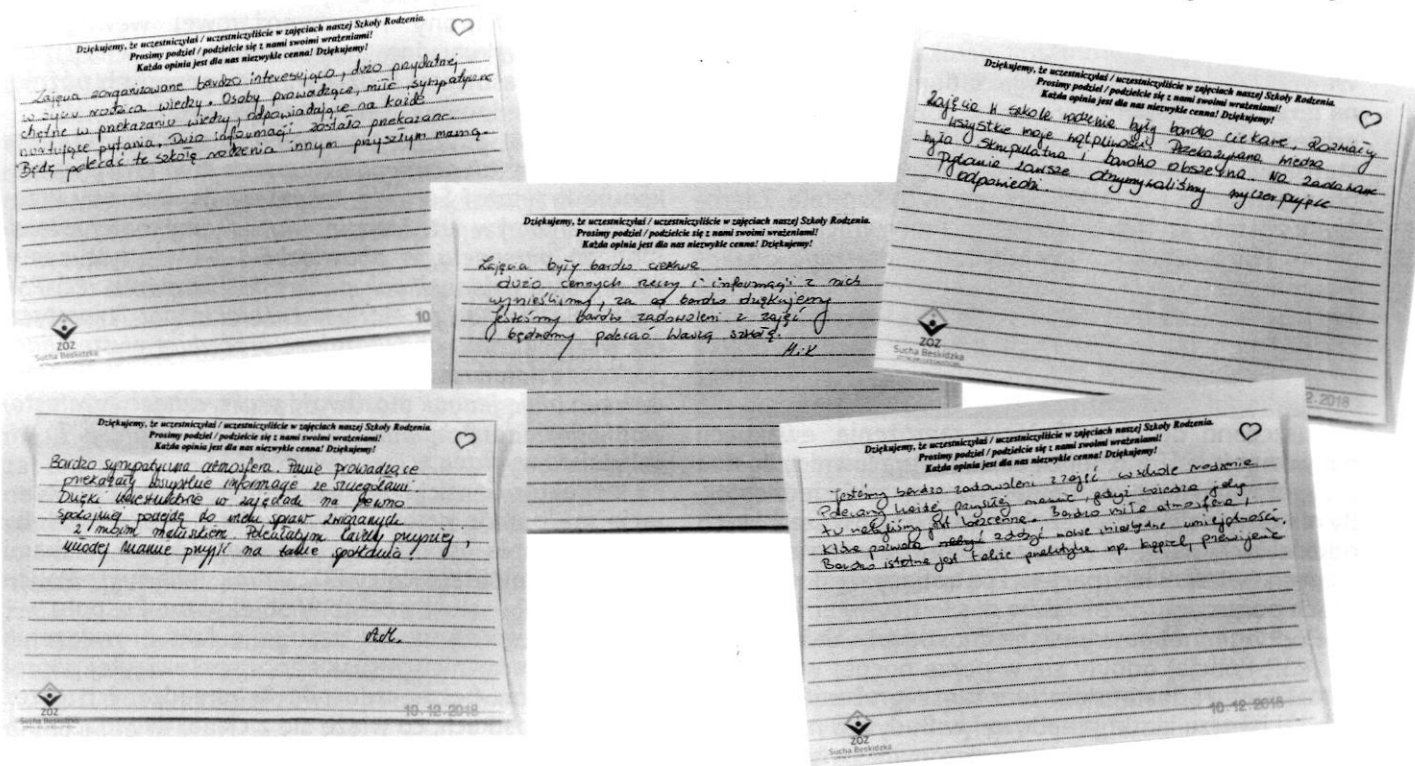 Dziękujemy, że uczestniczyłaś / uczestniczyliście w zajęciach naszej Szkoły Rodzenia.
Prosimy podziel / podzielcie się z nami swoimi wrażeniami!
Każda opinia jest dla nas niezwykle cenna! Dziękujemy!
Zajęcia zorganizowane bardzo interesująco, dużo przydatnej
w życiu rodzica wiedzy. Osoby prowadzące, miłe, sympatyczne
chętne w przekazaniu wiedzy, odpowiadające na każde
nurtujące pytania. Dużo informacji zostało przekazane.
Będę polecać tę szkołę rodzenia innym przyszłym mamą.
10
ZOZ
Sucha Beskidzka
Dziękujemy, że uczestniczyłaś / uczestniczyliście w zajęciach naszej Szkoły Rodzenia.
Prosimy podziel / podzielcie się z nami swoimi wrażeniami!
Każda opinia jest dla nas niezwykle cenna! Dziękujemy!
Zajęcia w szkole rodzenia były bardzo ciekawe, rozwiały
wszystkie moje wątpliwości. Przekazywana wiedza
była skrupulatna i bardzo obszerna. Na zadawane
pytania zawsze otrzymywaliśmy wyczerpujące
odpowiedzi.
ZOZ
Sucha Beskidzka
2.2018
Dziękujemy, że uczestniczyłaś / uczestniczyliście w zajęciach naszej Szkoły Rodzenia.
Prosimy podziel / podzielcie się z nami swoimi wrażeniami!
Każda opinia jest dla nas niezwykle cenna! Dziękujemy!
Zajęcia były bardzo ciekawe
dużo cennych rzeczy i informacji z nich
wynieśliśmy, za co bardzo dziękujemy
Jesteśmy bardzo zadowoleni z zajęć
będziemy polecać Waszą szkołę.
Dziękujemy, że uczestniczyłaś / uczestniczyliście w zajęciach naszej Szkoły Rodzenia.
Prosimy podziel / podzielcie się z nami swoimi wrażeniami!
Każda opinia jest dla nas niezwykle cenna! Dziękujemy!
Bardzo sympatyczna atmosfera. Panie prowadzące
przekazały wszystkie informacje ze szczegółami.
Dzięki uczestnictwie w zajęciach na pewno
spokojniej podejdę do wielu spraw związanych
z moim maleństwem. Poleciłabym każdej przyszłej,
młodej mamie przyjść na takie spotkania!
A.M.
ZOZ
Sucha Beskidzka
10.12.2018
Dziękujemy, że uczestniczyłaś / uczestniczyliście w zajęciach naszej Szkoły Rodzenia.
Prosimy podziel / podzielcie się z nami swoimi wrażeniami!
Każda opinia jest dla nas niezwykle cenna! Dziękujemy!
Jesteśmy bardzo zadowoleni z zajęć w szkole rodzenia
Polecamy każdej przyszłej mamie, gdyż wiedza jaką
tu nabyliśmy jest bezcenna. Bardzo miła atmosfera,
która pozwala zdobyć nowe, niezbędne umiejętności.
Bardzo istotna jest także praktyka np. kąpiel, przewijanie
ZOZ
Sucha Beskidzka
10.12.2018